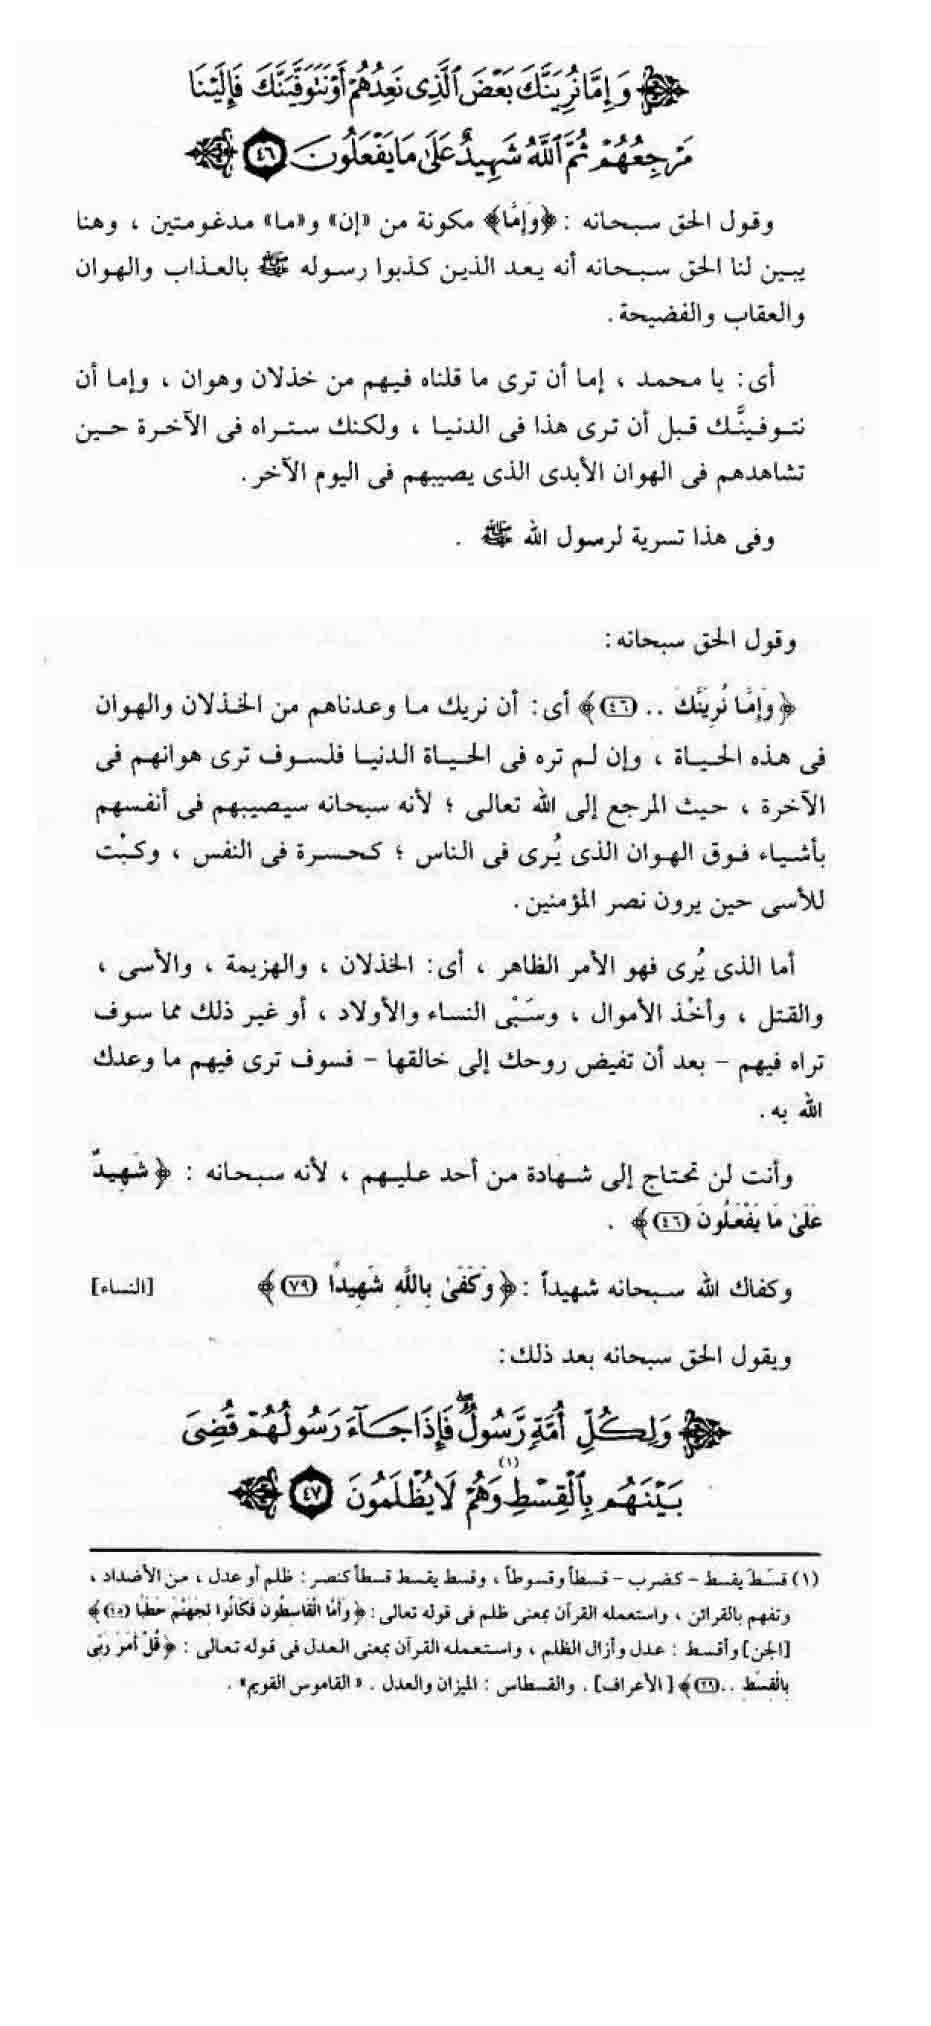 ﴿ وَإِمَّا نُرِيَنَّكَ بَعْضَ ٱلَّذِى نَعِدُهُمْ أَوْ نَتَوَفَّيَنَّكَ فَإِلَيْنَا
مَرْجِعُهُمْ ثُمَّ ٱللَّهُ شَهِيدٌ عَلَىٰ مَا يَفْعَلُونَ ٤٦ ﴾
وقول الحق سبحانه : ﴿وَإِمَّا﴾ مكونة من «إن» و«ما» مدغومتين ، وهنا
يبين لنا الحق سبحانه أنه يعد الذين كذبوا رسوله ﷺ بالعذاب والهوان
والعقاب والفضيحة .
أى : يا محمد ، إما أن ترى ما قلناه فيهم من خذلان وهوان ، وإما أن
نتوفينَّك قبل أن ترى هذا فى الدنيا ، ولكنك ستراه فى الآخرة حين
تشاهدهم فى الهوان الأبدى الذى يصيبهم فى اليوم الآخر .
وفى هذا تسرية لرسول الله ﷺ .
وقول الحق سبحانه :
﴿ وَإِمَّا نُرِيَنَّكَ .. (٤٦) ﴾ أى : أن نريك ما وعدناهم من الخذلان والهوان
فى هذه الحياة ، وإن لم تره فى الحياة الدنيا فلسوف ترى هوانهم فى
الآخرة ، حيث المرجع إلى الله تعالى ؛ لأنه سبحانه سيصيبهم فى أنفسهم
بأشياء فوق الهوان الذى يُرى فى الناس ؛ كحسرة فى النفس ، وكبْت
للأسى حين يرون نصر المؤمنين .
أما الذى يُرى فهو الأمر الظاهر ، أى : الخذلان ، والهزيمة ، والأسى ،
والقتل ، وأخْذ الأموال ، وسَبْى النساء والأولاد ، أو غير ذلك مما سوف
تراه فيهم - بعد أن تفيض روحك إلى خالقها - فسوف ترى فيهم ما وعدك
الله به .
وأنت لن تحتاج إلى شهادة من أحد عليهم ، لأنه سبحانه : ﴿ شَهِيدٌ
عَلَىٰ مَا يَفْعَلُونَ (٤٦) ﴾ .
وكفاك الله سبحانه شهيداً : ﴿ وَكَفَىٰ بِاللَّهِ شَهِيدًا (٧٩) ﴾ [النساء]
ويقول الحق سبحانه بعد ذلك :
﴿ وَلِكُلِّ أُمَّةٍ رَّسُولٌ ۖ فَإِذَا جَآءَ رَسُولُهُمْ قُضِىَ
بَيْنَهُم بِٱلْقِسْطِ (١) وَهُمْ لَا يُظْلَمُونَ ٤٧ ﴾
(١) قسَطَ يقسط - كضرب - قسطاً وقسوطاً ، وقسط يقسط قسطاً كنصر : ظلم أو عدل ، من الأضداد ،
وتفهم بالقرائن ، واستعمله القرآن بمعنى ظلم فى قوله تعالى : ﴿ وَأَمَّا الْقَاسِطُونَ فَكَانُوا لِجَهَنَّمَ حَطَبًا (١٥) ﴾
[الجن] وأقسط : عدل وأزال الظلم ، واستعمله القرآن بمعنى العدل فى قوله تعالى : ﴿ قُلْ أَمَرَ رَبِّى
بِالْقِسْطِ .. (٢٩) ﴾ [الأعراف] . والقسطاس : الميزان والعدل . «القاموس القويم» .